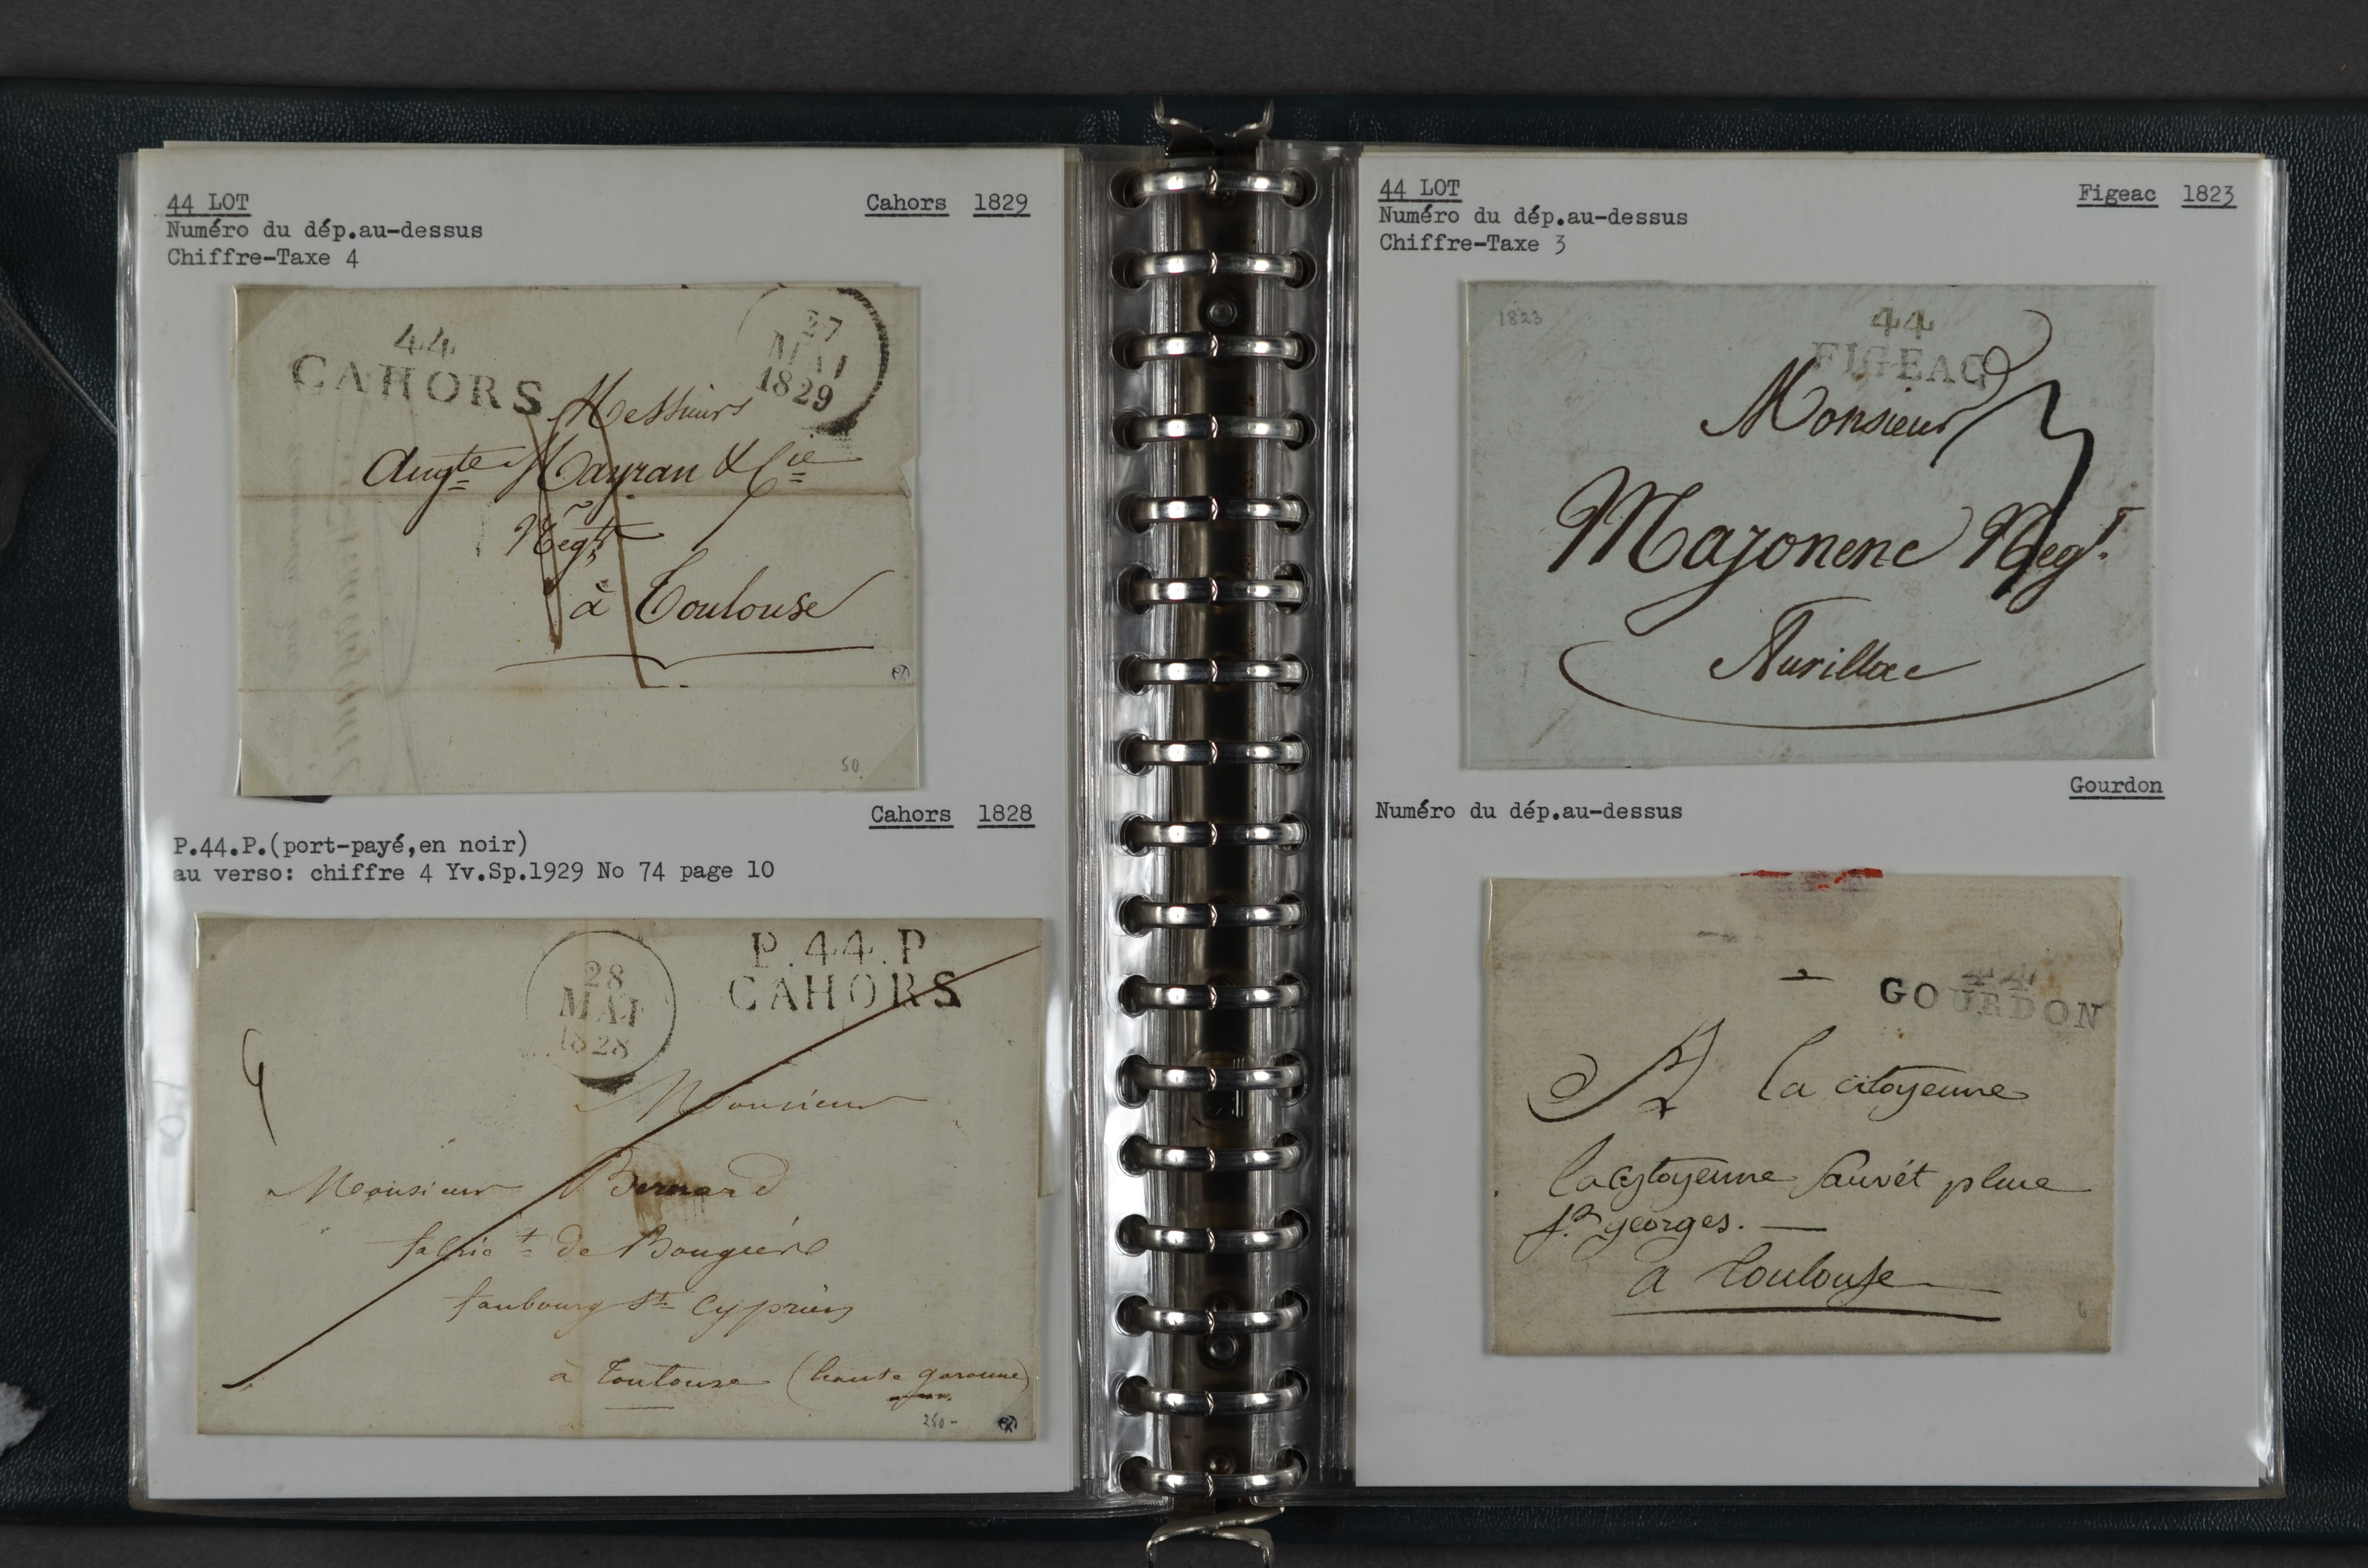 44 LOT
Cahors 1829
Numéro du dép.au-dessus
Chiffre-Taxe 4
44
CAHORS
27
MAI
1829
Messieurs
Augte Mayran & Cie
Negts
à Toulouse
50
Cahors 1828
P.44.P.(port-payé,en noir)
au verso: chiffre 4 Yv.Sp.1929 No 74 page 10
P.44.P
CAHORS
28
MAI
1828
4
Monsieur
Monsieur Bernard
fabrict de Bougies
faubourg St Cyprien
à Toulouse (haute garonne)
250-
44 LOT
Figeac 1823
Numéro du dép.au-dessus
Chiffre-Taxe 3
1823
44
FIGEAC
3
Monsieur
Mazonenc Negt.
Aurillac
Gourdon
Numéro du dép.au-dessus
44
GOURDON
la citoyenne
la cytoyenne Sauvét place
St georges.
a toulouse
6